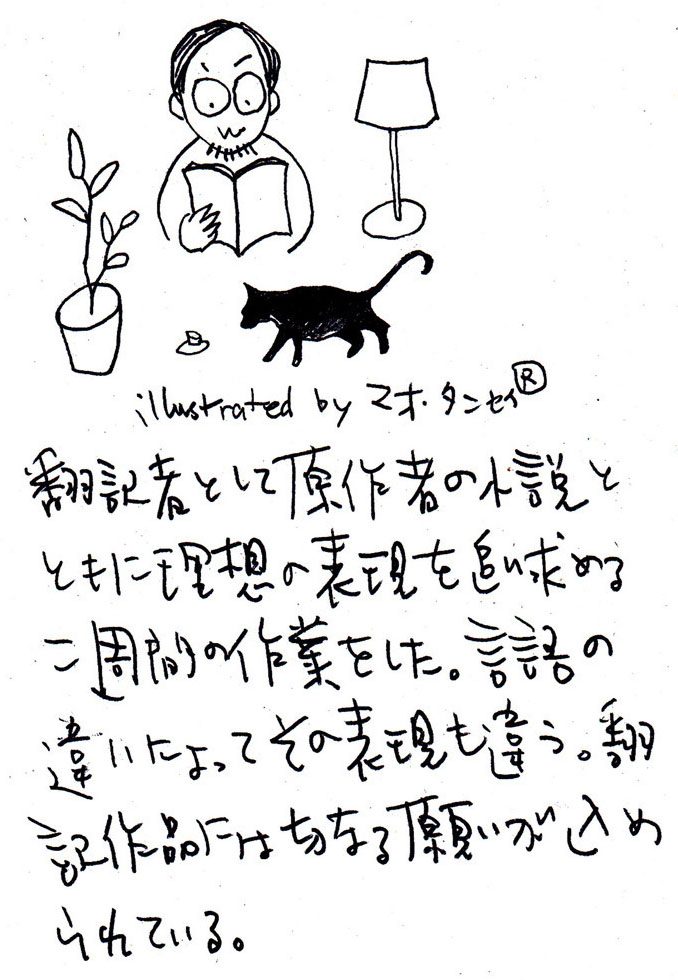 illustrated by マオ・タンセイ®
翻訳者として原作者の小説と
ともに理想の表現を追い求める
二週間の作業をした。言語の
違いによってその表現も違う。翻
訳作品には切なる願いが込め
られている。